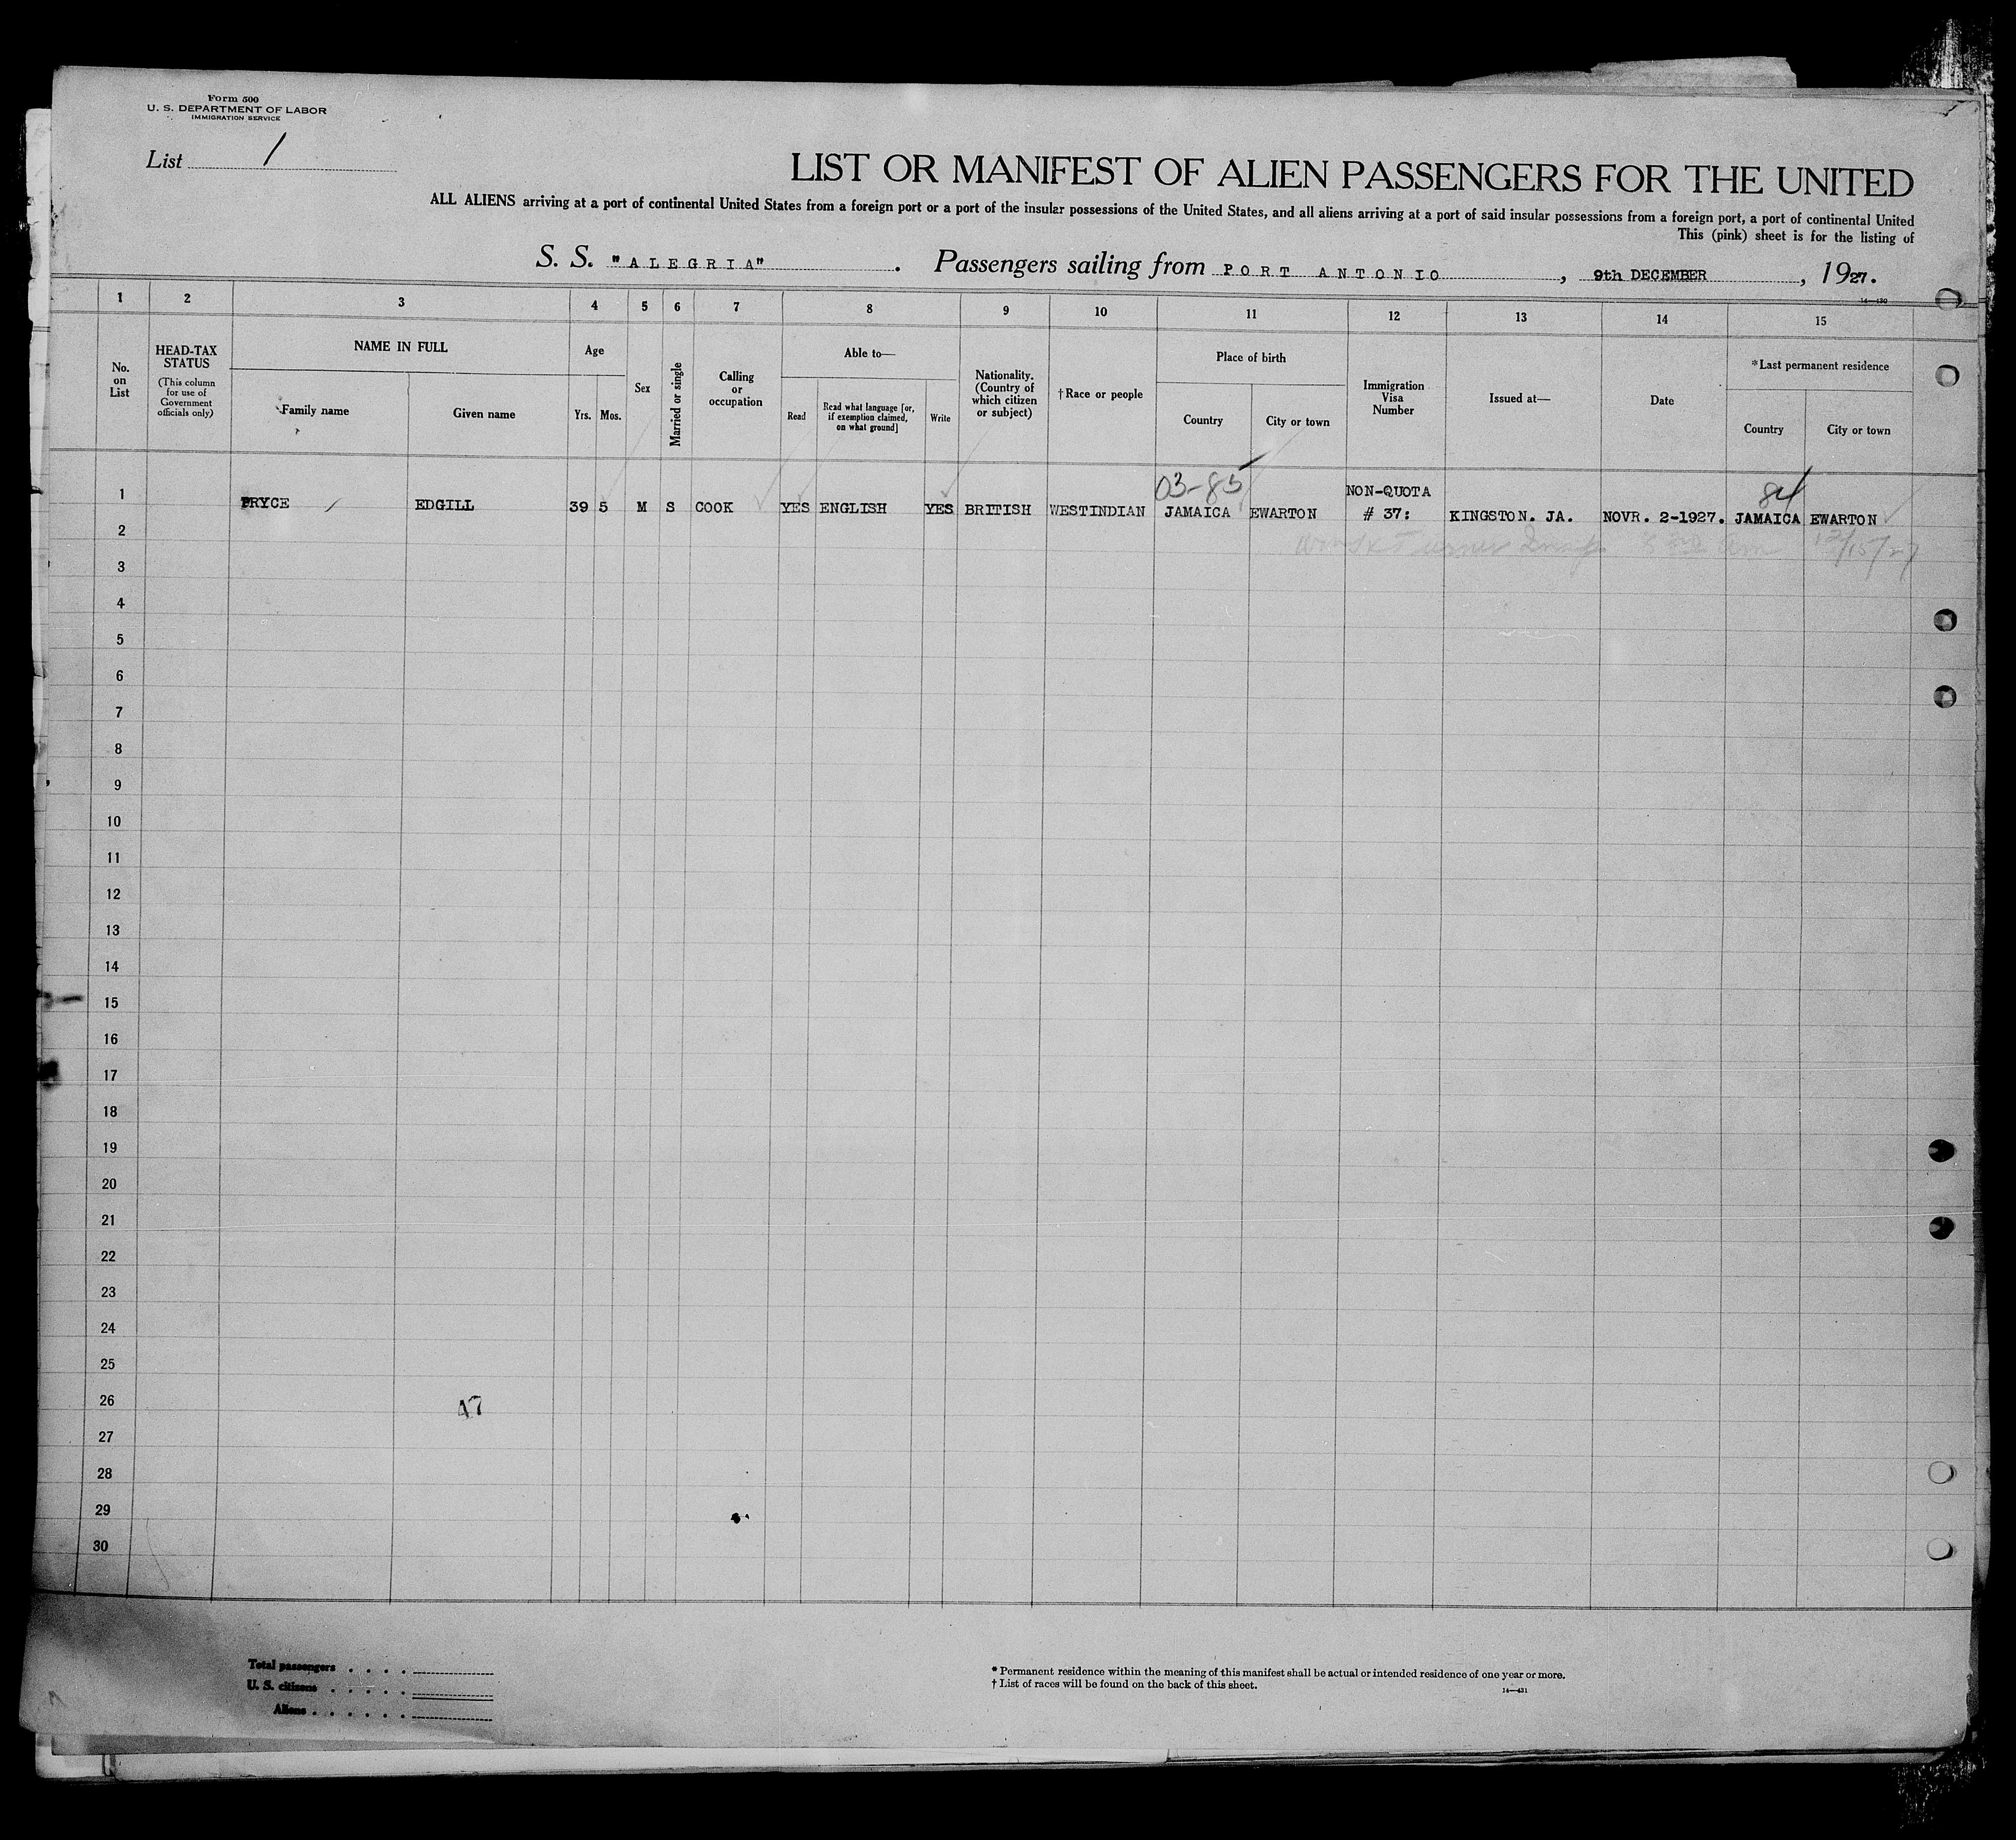 Form 500
U. S. DEPARTMENT OF LABOR
IMMIGRATION SERVICE
List 1
LIST OR MANIFEST OF ALIEN PASSENGERS FOR THE UNITED
ALL ALIENS arriving at a port of continental United States from a foreign port or a port of the insular possessions of the United States, and all aliens arriving at a port of said insular possessions from a foreign port, a port of continental United
This (pink) sheet is for the listing of
S. S. "ALEGRIA". Passengers sailing from PORT ANTONIO, 9th DECEMBER, 1927.
14—430
1 2 3 4 5 6 7 8 9 10 11 12 13 14 15
No. on List
HEAD-TAX STATUS
(This column for use of Government officials only)
NAME IN FULL
Family name
Given name
Age
Yrs.
Mos.
Sex
Married or single
Calling or occupation
Able to—
Read
Read what language [or, if exemption claimed, on what ground]
Write
Nationality. (Country of which citizen or subject)
†Race or people
Place of birth
Country
City or town
Immigration Visa Number
Issued at—
Date
*Last permanent residence
Country
City or town
03-85
84
1 PRYCE EDGILL 39 5 M S COOK YES ENGLISH YES BRITISH WESTINDIAN JAMAICA EWARTON NON-QUOTA # 37: KINGSTON. JA. NOVR. 2-1927. JAMAICA EWARTON
2 Turner 12/15/27
3
4
5
6
7
8
9
10
11
12
13
14
15
16
17
18
19
20
21
22
23
24
25
26
47
27
28
29
30
Total passengers . . . .
U. S. citizens . . . . .
Aliens . . . . . .
* Permanent residence within the meaning of this manifest shall be actual or intended residence of one year or more.
† List of races will be found on the back of this sheet.
14—431